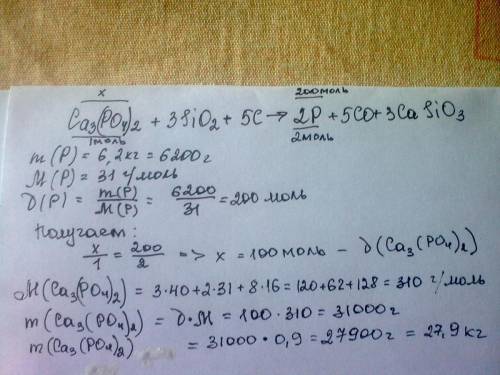 x 200моль
Ca₃(PO₄)₂ + 3SiO₂ + 5C → 2P + 5CO + 3CaSiO₃
1моль 2моль
m(P) = 6,2кг = 6200г
M(P) = 31 г/моль
ν(P) = m(P)/M(P) = 6200/31 = 200 моль
Получаем:
x/1 = 200/2 => x = 100моль – ν(Ca₃(PO₄)₂)
M(Ca₃(PO₄)₂) = 3·40+2·31+8·16 = 120+62+128 = 310 г/моль
m(Ca₃(PO₄)₂) = ν·M = 100·310 = 31000г
m(Ca₃(PO₄)₂) = 31000·0,9 = 27900г = 27,9кг